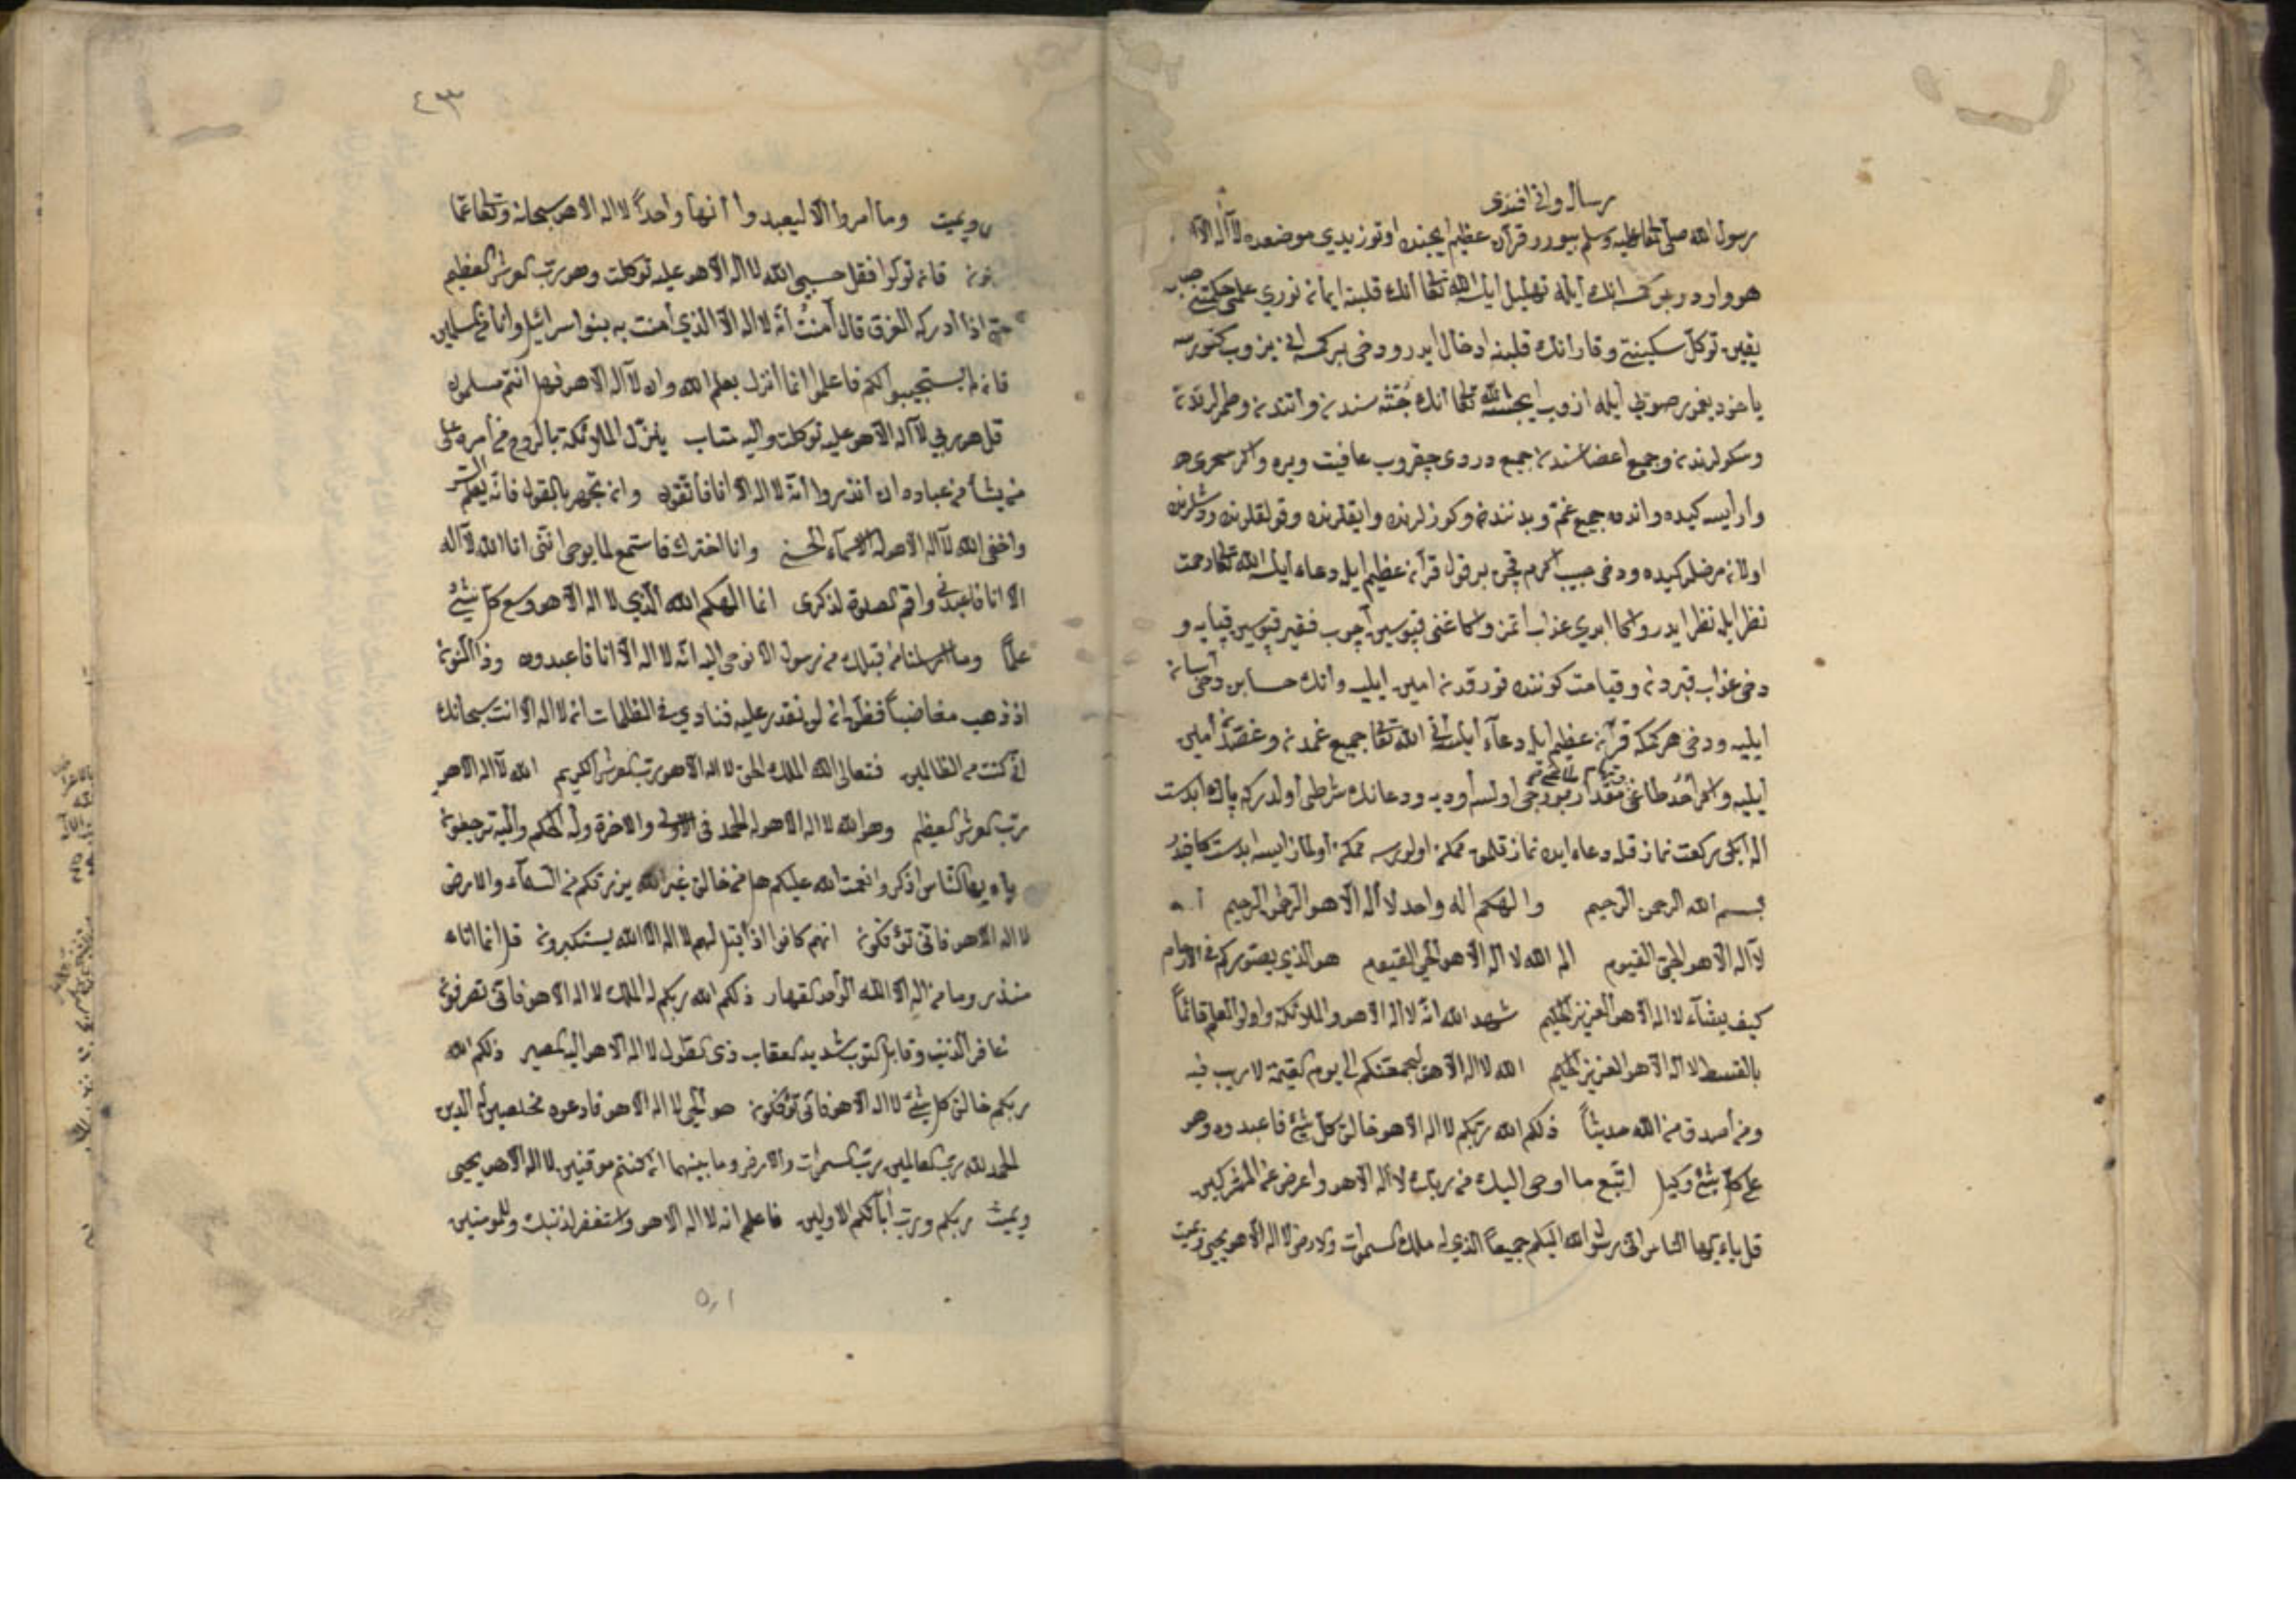 رساله وانى افندى
رسول الله صلى تعالى عليه وسلم بيورر قرآن عظيم ايچنده اوتوز يدي موضعده لا آله الا
هو واردر هر كمسه انك ايله تهليل ايلسه الله تعالى انك قلبنه ايمان نوري علمى حكمتى
يقين توكل سكينتى وقار انك قلبنه ادخال ايدر ودخى بر كمسه انى يزوب كتورسه
ياخود يغمور صويى ايله ازوب ايچسه الله تعالى انك جثه سندن واتندن وطمرلرندن
وسكرلرندن وجميع اعضاسندن جميع دردى چقروب عافيت ويره واكر سحرى
وار ايسه كيده واندن جميع غم وبدنندن وكوزلرندن وايقلرندن وقولقلرندن
اولان مرضلر كيده ودخى حبيب اكرم قچن بر قول قرآن عظيم ايله دعاء ايلسه الله تعالى رحمت
نظر ايله نظر ايدر واكا ابدي عذاب اتمز واكا غنى قپوسين آچوب فقير قپوسين قپايه و
دخى عذاب قبردن وقيامت كوننده قورقدن امين ايليه وانك حسابن دخى آسان
ايليه ودخى هر كمكه قرآن عظيم ايله دعاء ايلسه انى الله تعالى جميع غمدن وغصه دن امين
ايليه واكر احد طاغى مقدار بورجى اولسه اوديه ودعانك شرطى اولدركه پاك ابدست
اله ايكى ركعت نماز قله دعاء ايده نماز قلمق ممكن اولورسه ممكن اولماز ايسه ابدست كافيدر
بسم الله الرحمن الرحيم والهكم اله واحد لا اله الا هو الرحمن الرحيم
لا اله الا هو الحي القيوم الم الله لا اله الا هو الحي القيوم هو الذي يصوركم فى الارحام
كيف يشآء لا اله الا هو العزيز الحكيم شهد الله انه لا اله الا هو والملائكة واولوا العلم قائماً
بالقسط لا اله الا هو العزيز الحكيم الله لا اله الا هو ليجمعنكم الى يوم القيمة لا ريب فيه
ومن أصدق من الله حديثاً ذلكم الله ربكم لا اله الا هو خالق كل شئ فاعبدوه وهو
على كل شئ وكيل اتبع ما اوحى اليك من ربك لا اله الا هو واعرض عن المشركين
قل ياءيها الناس انى رسول الله اليكم جميعاً الذي له ملك السموات والارض لا اله الا هو يحيى ويميت
٤٣
ويميت وما امروا الا ليعبدوا الهاً واحداً لا اله الا هو سبحانه وتعالى عما
فان تولوا فقل حسبى الله لا اله الا هو عليه توكلت وهو رب العرش العظيم
حتى اذا ادركه الغرق قال آمنت أنه لا اله الا الذي آمنت به بنوا اسرائيل وانا من المسلمين
فان لم يستجيبوا لكم فاعلموا انما انزل بعلم الله وان لا اله الا هو فهل انتم مسلمون
قل هو ربي لا اله الا هو عليه توكلت واليه متاب ينزل الملائكة بالروح من أمره على
من يشأ من عباده ان انذروا أنه لا اله الا انا فاتقون وان تجهر بالقول فانه يعلم السر
واخفى الله لا اله الا هو له الاسماء الحسنى وانا اخترتك فاستمع لما يوحى اننى انا الله لا اله
الا انا فاعبدنى واقم الصلوة لذكرى انما الهكم الله الذي لا اله الا هو وسع كل شئ
علماً وما ارسلنا من قبلك من رسول الا نوحى اليه انه لا اله الا انا فاعبدون وذا النون
اذ ذهب مغاضباً فظن ان لن نقدر عليه فنادي فى الظلمات ان لا اله الا انت سبحانك
انى كنت من الظالمين فتعالى الله الملك الحق لا اله الا هو رب العرش الكريم الله لا اله الا هو
رب العرش العظيم وهو الله لا اله الا هو له الحمد فى الاولى والاخرة وله الحكم واليه ترجعون
ياءيها الناس اذكروا نعمت الله عليكم هل من خالق غير الله يرزقكم من السمآء والارض
لا اله الا هو فانى تؤفكون انهم كانوا اذا قيل لهم لا اله الا الله يستكبرون قل انما انا
منذر وما من اله الا الله الواحد القهار ذلكم الله ربكم له الملك لا اله الا هو فانى تصرفون
غافر الذنب وقابل التوب شديد العقاب ذى الطول لا اله الا هو اليه المصير ذلكم الله
ربكم خالق كل شئ لا اله الا هو فانى تؤفكون هو الحى لا اله الا هو فادعوه مخلصين له الدين
الحمد لله رب العالمين رب السموات والارض وما بينهما ان كنتم موقنين لا اله الا هو يحيى
ويميت ربكم ورب آبآئكم الاولين فاعلم انه لا اله الا هو واستغفر لذنبك وللمؤمنين